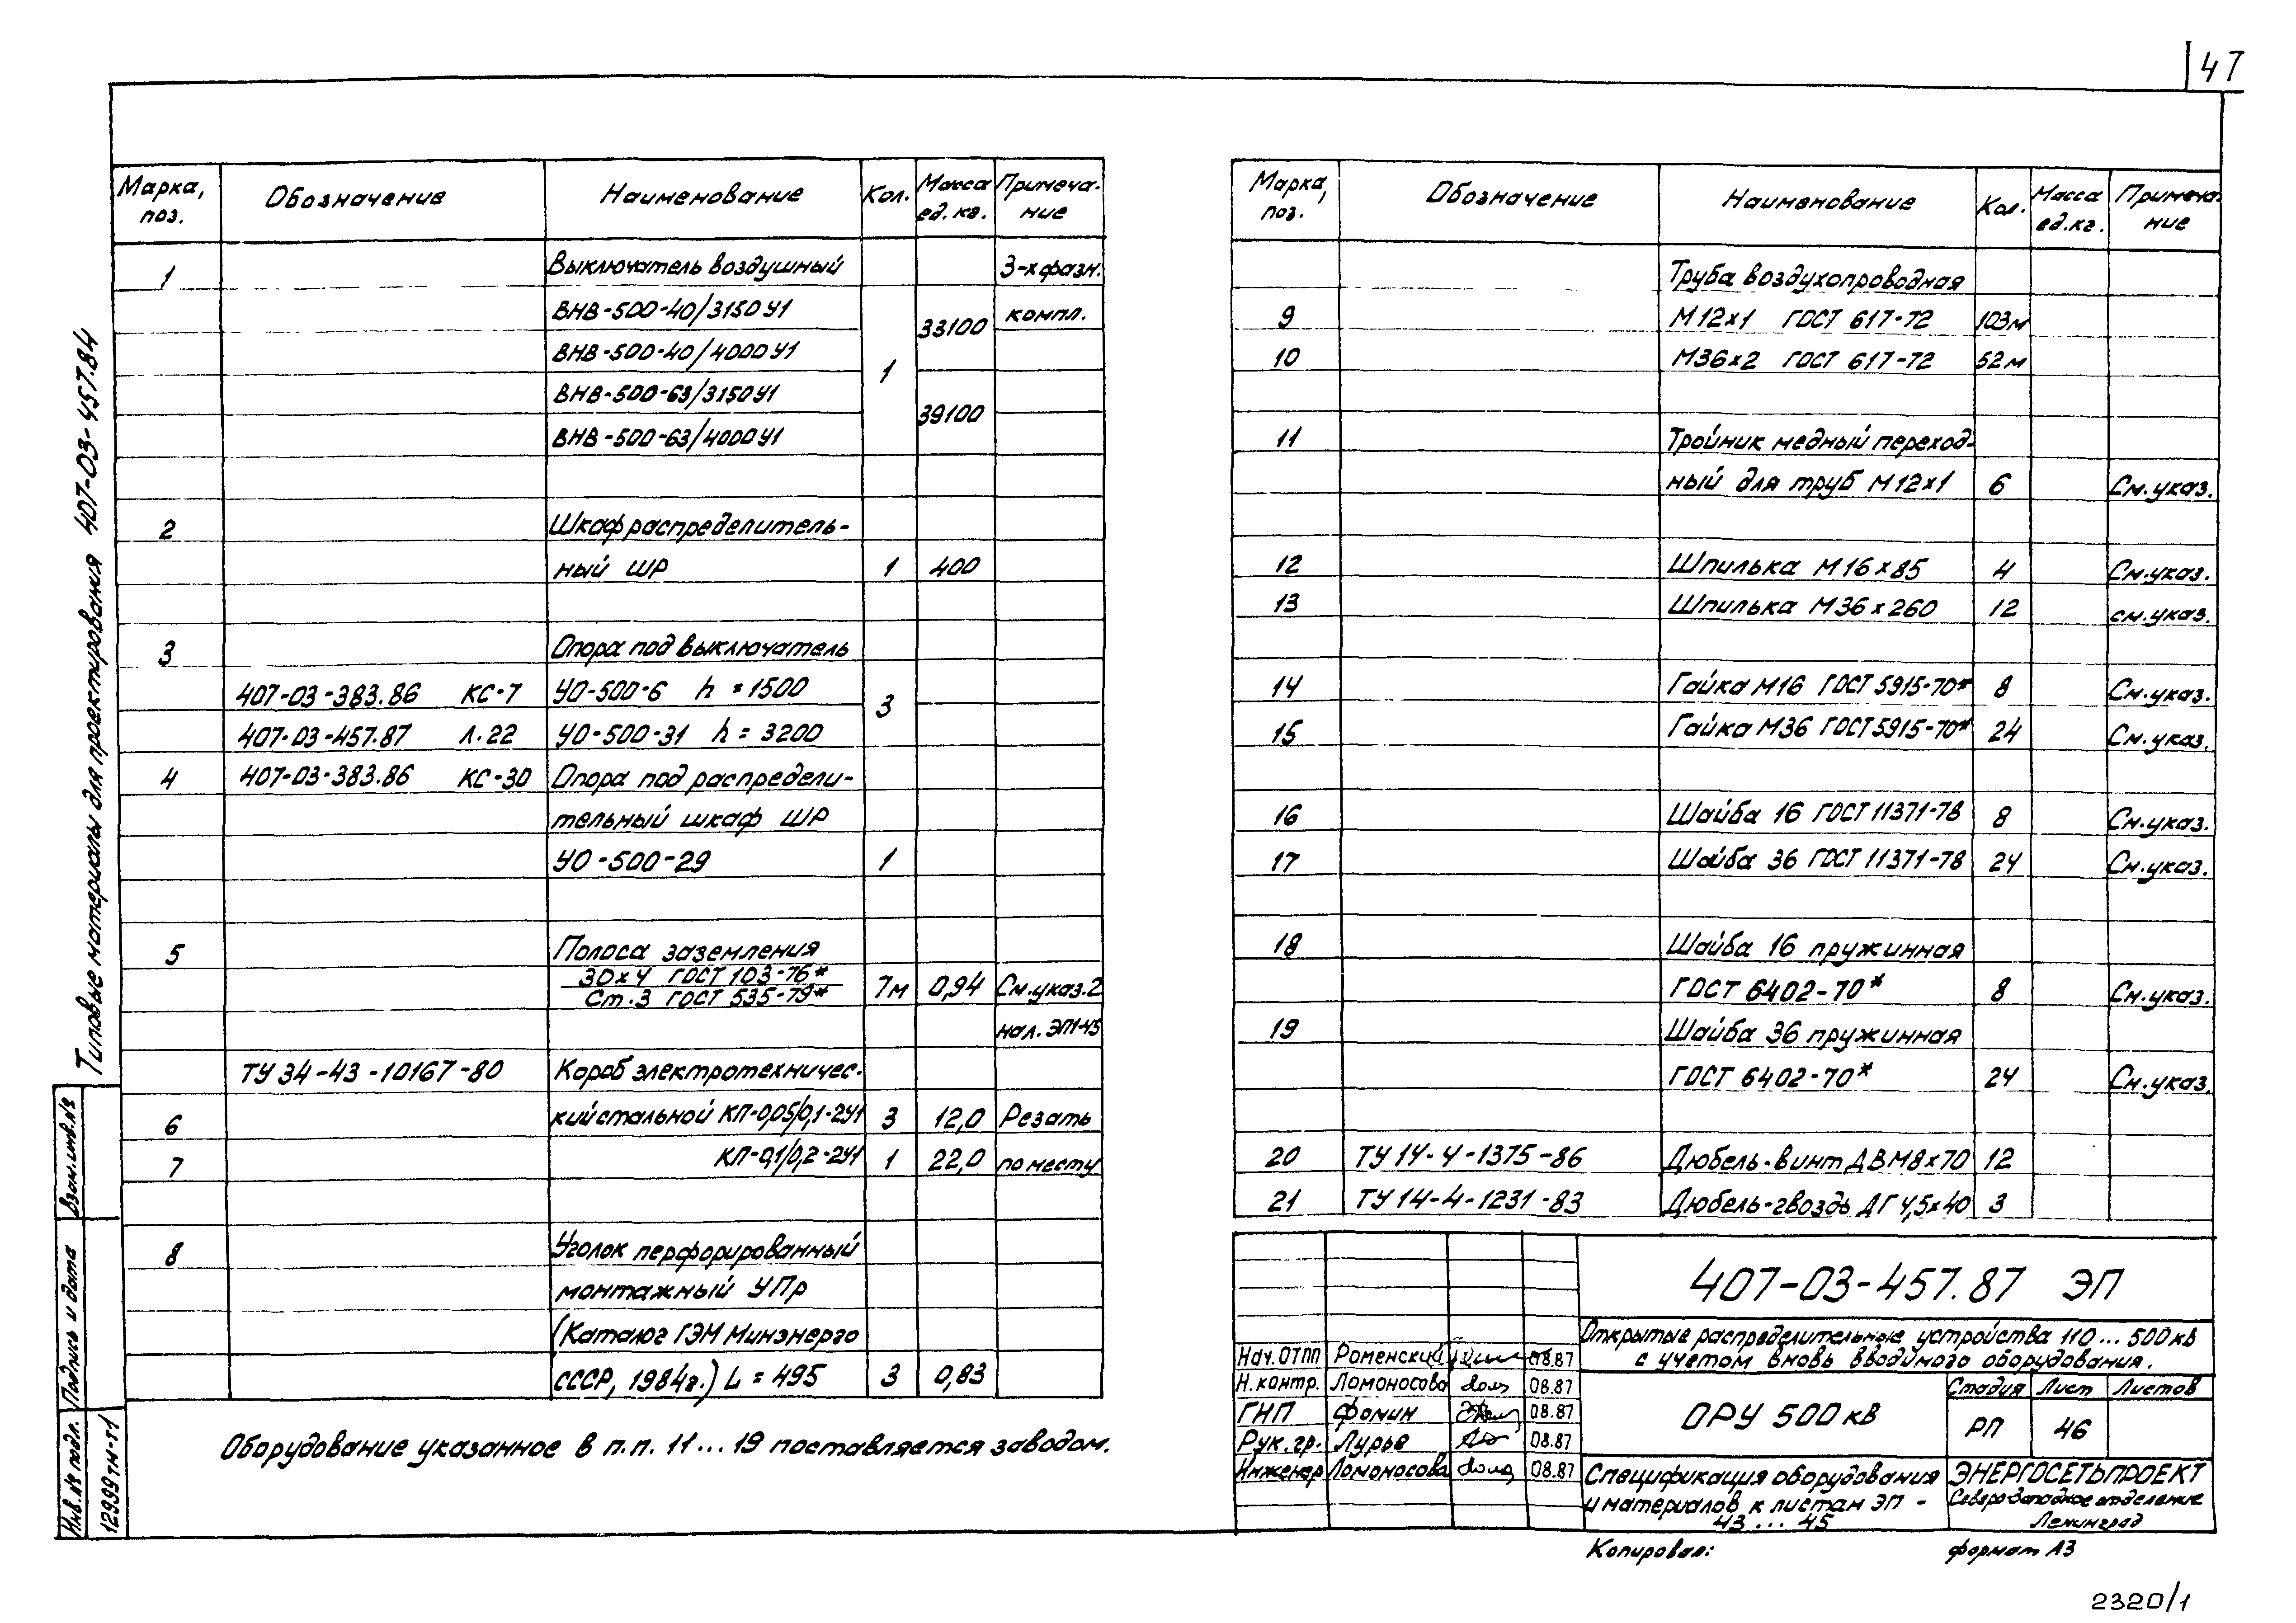 47
Марка, поз. Обозначение Наименование Кол. Масса ед. кг. Примеча-ние
1 Выключатель воздушный 3-х фазн.
ВНВ-500-40/3150У1 33100 компл.
ВНВ-500-40/4000У1
1
ВНВ-500-63/3150У1 39100
ВНВ-500-63/4000У1
2 Шкаф распределитель-
ный ШР 1 400
3 Опора под выключатель
407-03-383.86 КС-7 УО-500-6 h = 1500 3
407-03-457.87 Л.22 УО-500-31 h = 3200
4 407-03-383.86 КС-30 Опора под распредели-
тельный шкаф ШР
УО-500-29 1
5 Полоса заземления
30х4 ГОСТ 103-76*
Ст.3 ГОСТ 535-79* 7м 0,94 См.указ.2
на л. ЭП1-45
ТУ 34-43-10167-80 Короб электротехничес-
6 кий стальной КП-0,05/0,1-2У1 3 12,0 Резать
7 КП-0,1/0,2-2У1 1 22,0 по месту
8 Уголок перфорированный
монтажный УПр
(Каталог ГЭМ Минэнерго
СССР, 1984г.) L = 495 3 0,83
Оборудование указанное в п.п. 11...19 поставляется заводом.
Марка, поз. Обозначение Наименование Кол. Масса ед.кг. Примеча-ние
Труба воздухопроводная
9 М12х1 ГОСТ 617-72 103м
10 М36х2 ГОСТ 617-72 52м
11 Тройник медный переход-
ный для труб М12х1 6 См.указ.
12 Шпилька М16х85 4 См.указ.
13 Шпилька М36х260 12 см.указ.
14 Гайка М16 ГОСТ 5915-70* 8 См.указ.
15 Гайка М36 ГОСТ 5915-70* 24 См.указ.
16 Шайба 16 ГОСТ 11371-78 8 См.указ.
17 Шайба 36 ГОСТ 11371-78 24 См.указ.
18 Шайба 16 пружинная
ГОСТ 6402-70* 8 См.указ.
19 Шайба 36 пружинная
ГОСТ 6402-70* 24 См.указ.
20 ТУ 14-4-1375-86 Дюбель-винт ДВМ8х70 12
21 ТУ 14-4-1231-83 Дюбель-гвоздь ДГ 4,5х40 3
407-03-457.87 ЭП
Открытые распределительные устройства 110...500кв
с учетом вновь вводимого оборудования.
Нач.ОТПП Роменский 08.87
Н.контр. Ломоносова 08.87
ГНП Фомин 08.87
Рук.гр. Лурье 08.87
Инженер Ломоносова 08.87
ОРУ 500кв
Стадия Лист Листов
РП 46
Спецификация оборудования
и материалов к листам ЭП-
43...45
ЭНЕРГОСЕТЬПРОЕКТ
Северо-Западное отделение
Ленинград
Копировал: формат А3
2320/1
Типовые материалы для проектирования 407-03-457.84
Взам.инв.№
Подпись и дата
Инв.№ подл.
12999тм-т1